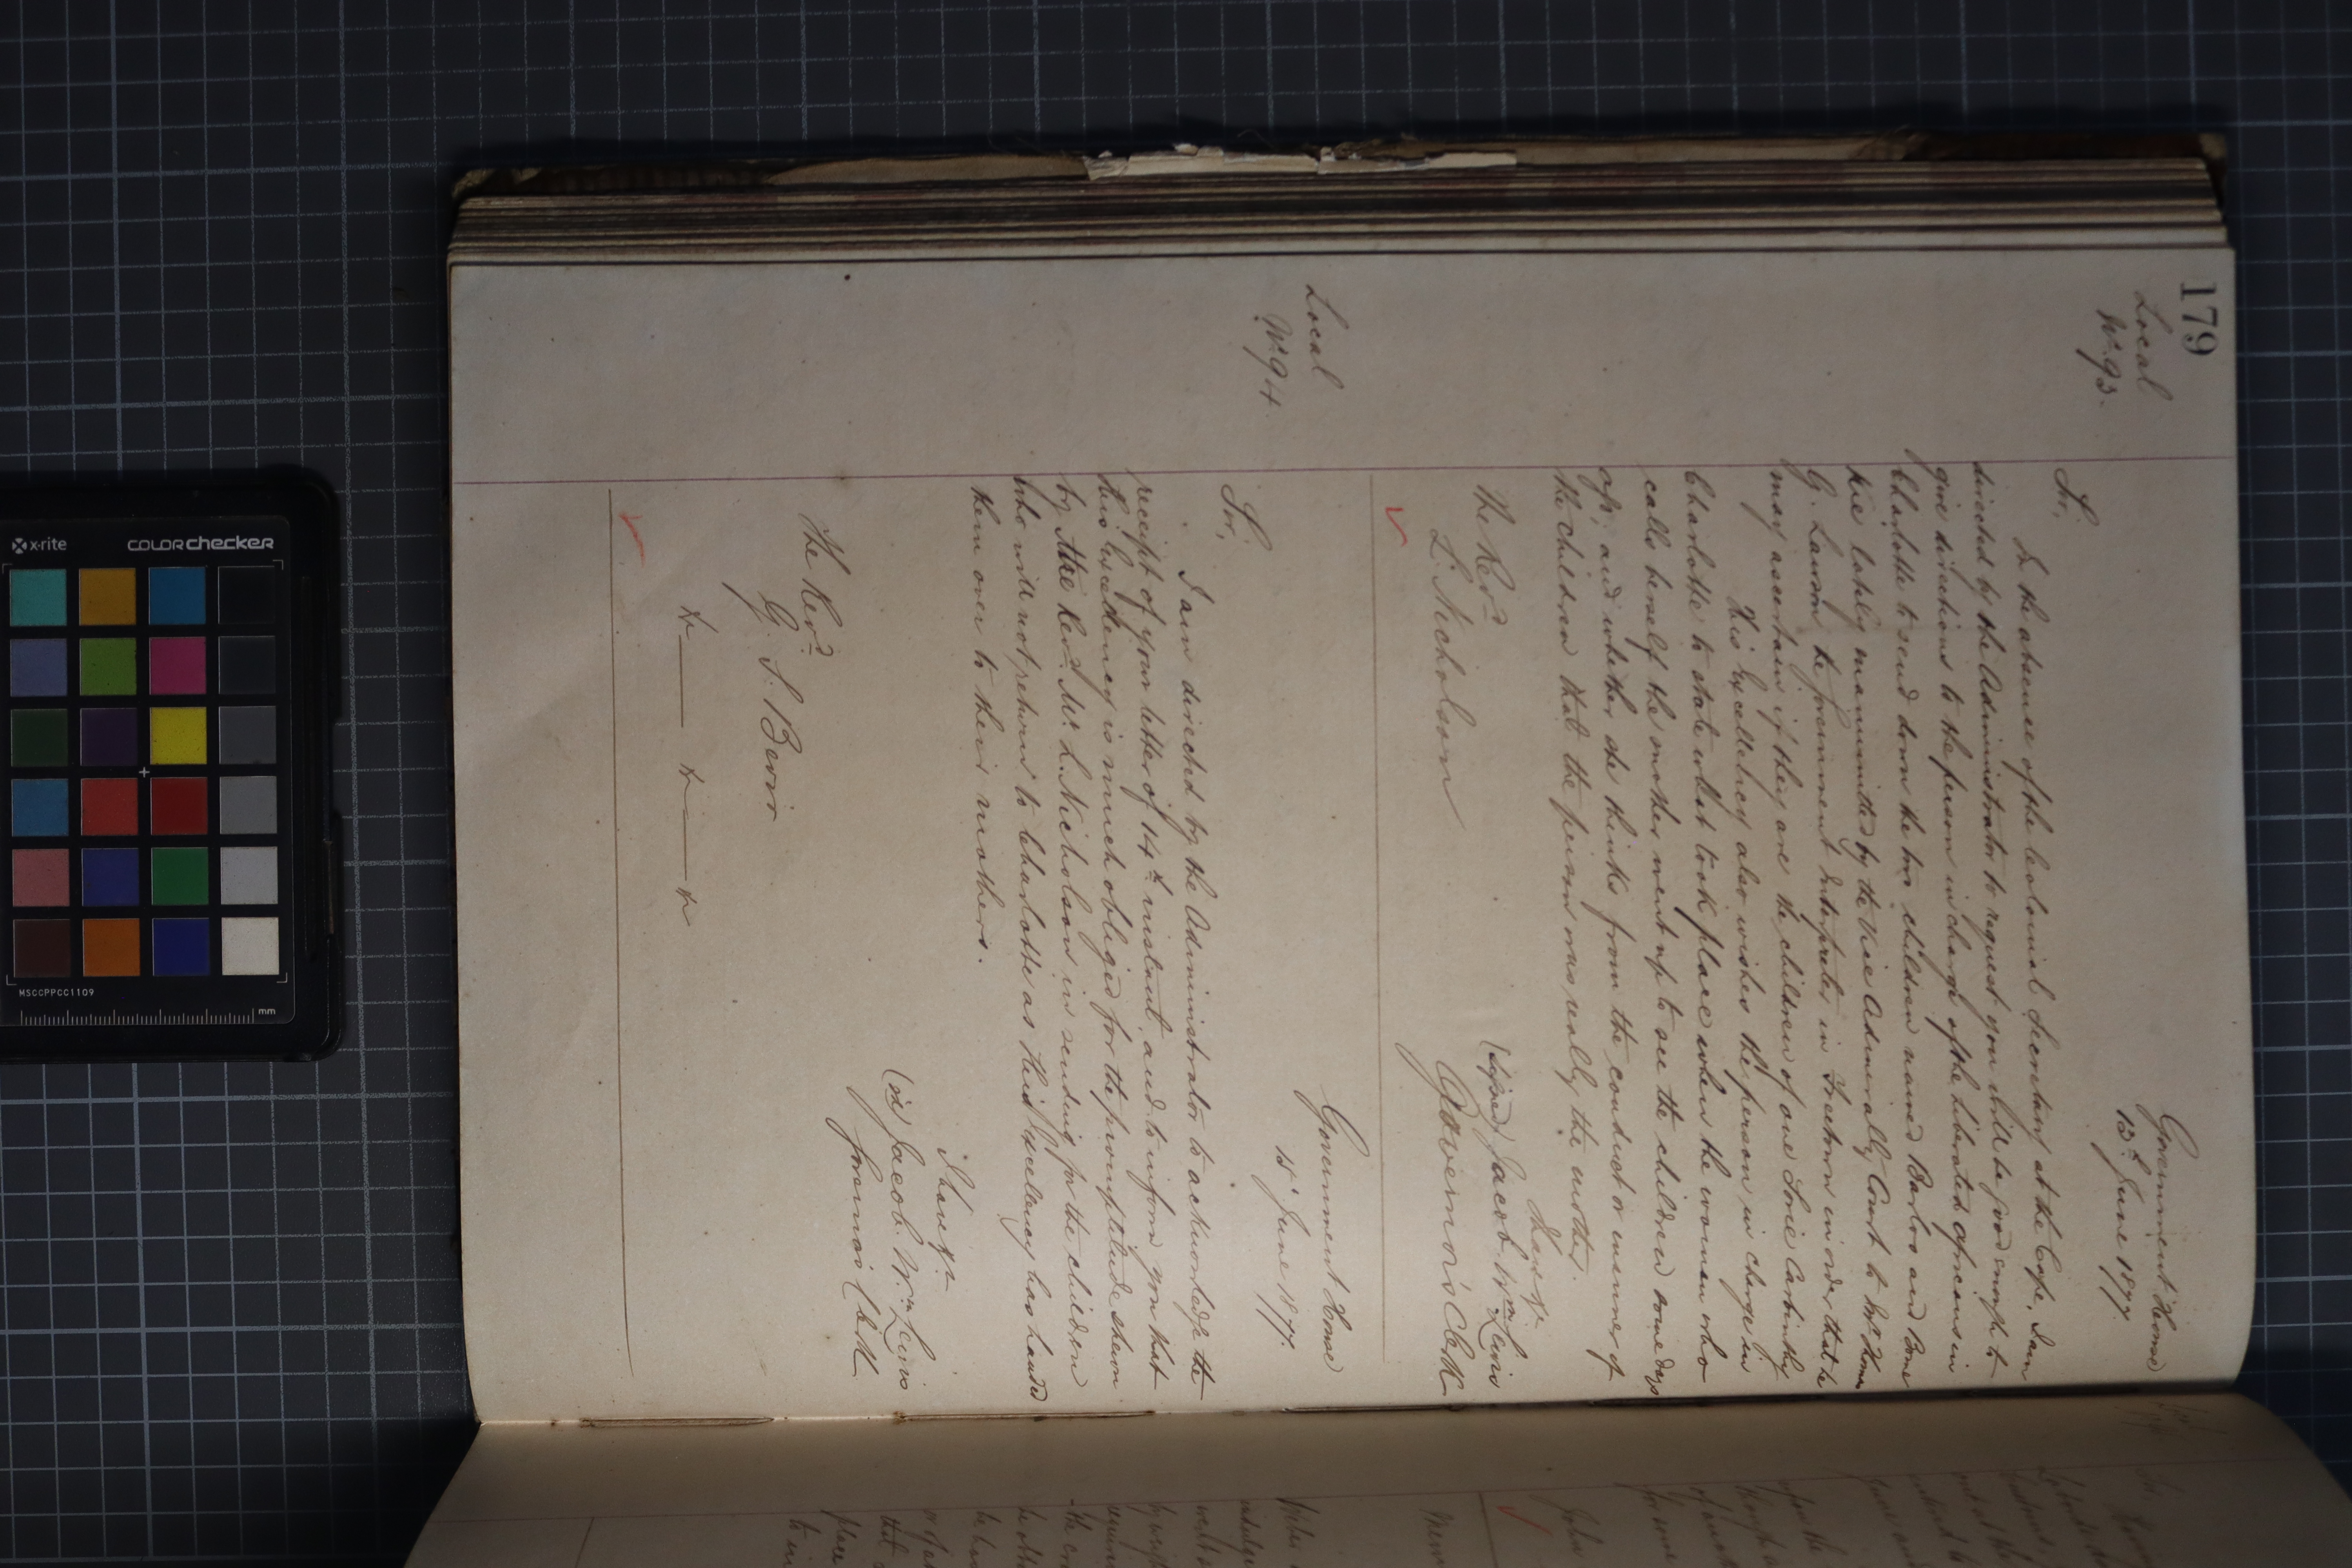 179
Local
No. 93.
Government House
13th June 1877.
Sir,
In the absence of the Colonial Secretary at the Cape, I am
directed by the Administrator to request you will be good enough to
give directions to the person in charge of the Liberated Africans in
Charlotte to send down the two children named Barloo and Bome
lately manumitted by the Vice Admiralty Court to
G. Lawson the Government Interpreter in Freetown in order that he
may ascertain if they are the children of one Sorie
His Excellency also wishes the person in charge in
Charlotte to state what took place when the woman who
calls herself the mother went up to see the children some days
ago, and whether she thinks from the conduct or manner of
the children that the person was really the mother.
I have &c.
(signed) Jacob Wm Lewis
Governor's Clerk
The Revd
L. Nicholson
Local
No. 94.
Government House
15 June 1877.
Sir,
I am directed by the Administrator to acknowledge the
receipt of your letter of 14th instant, and to inform you that
His Excellency is much obliged for the promptitude shewn
by the Revd Mr. L. Nicholson in sending for the children
who will not return to Charlotte as His Excellency has handed
them over to their mothers.
I have &c
Jacob. Wm Lewis
Governor's Clerk
The Revd
G. J.
x-rite
colorchecker
MSCCPPCC1109
mm